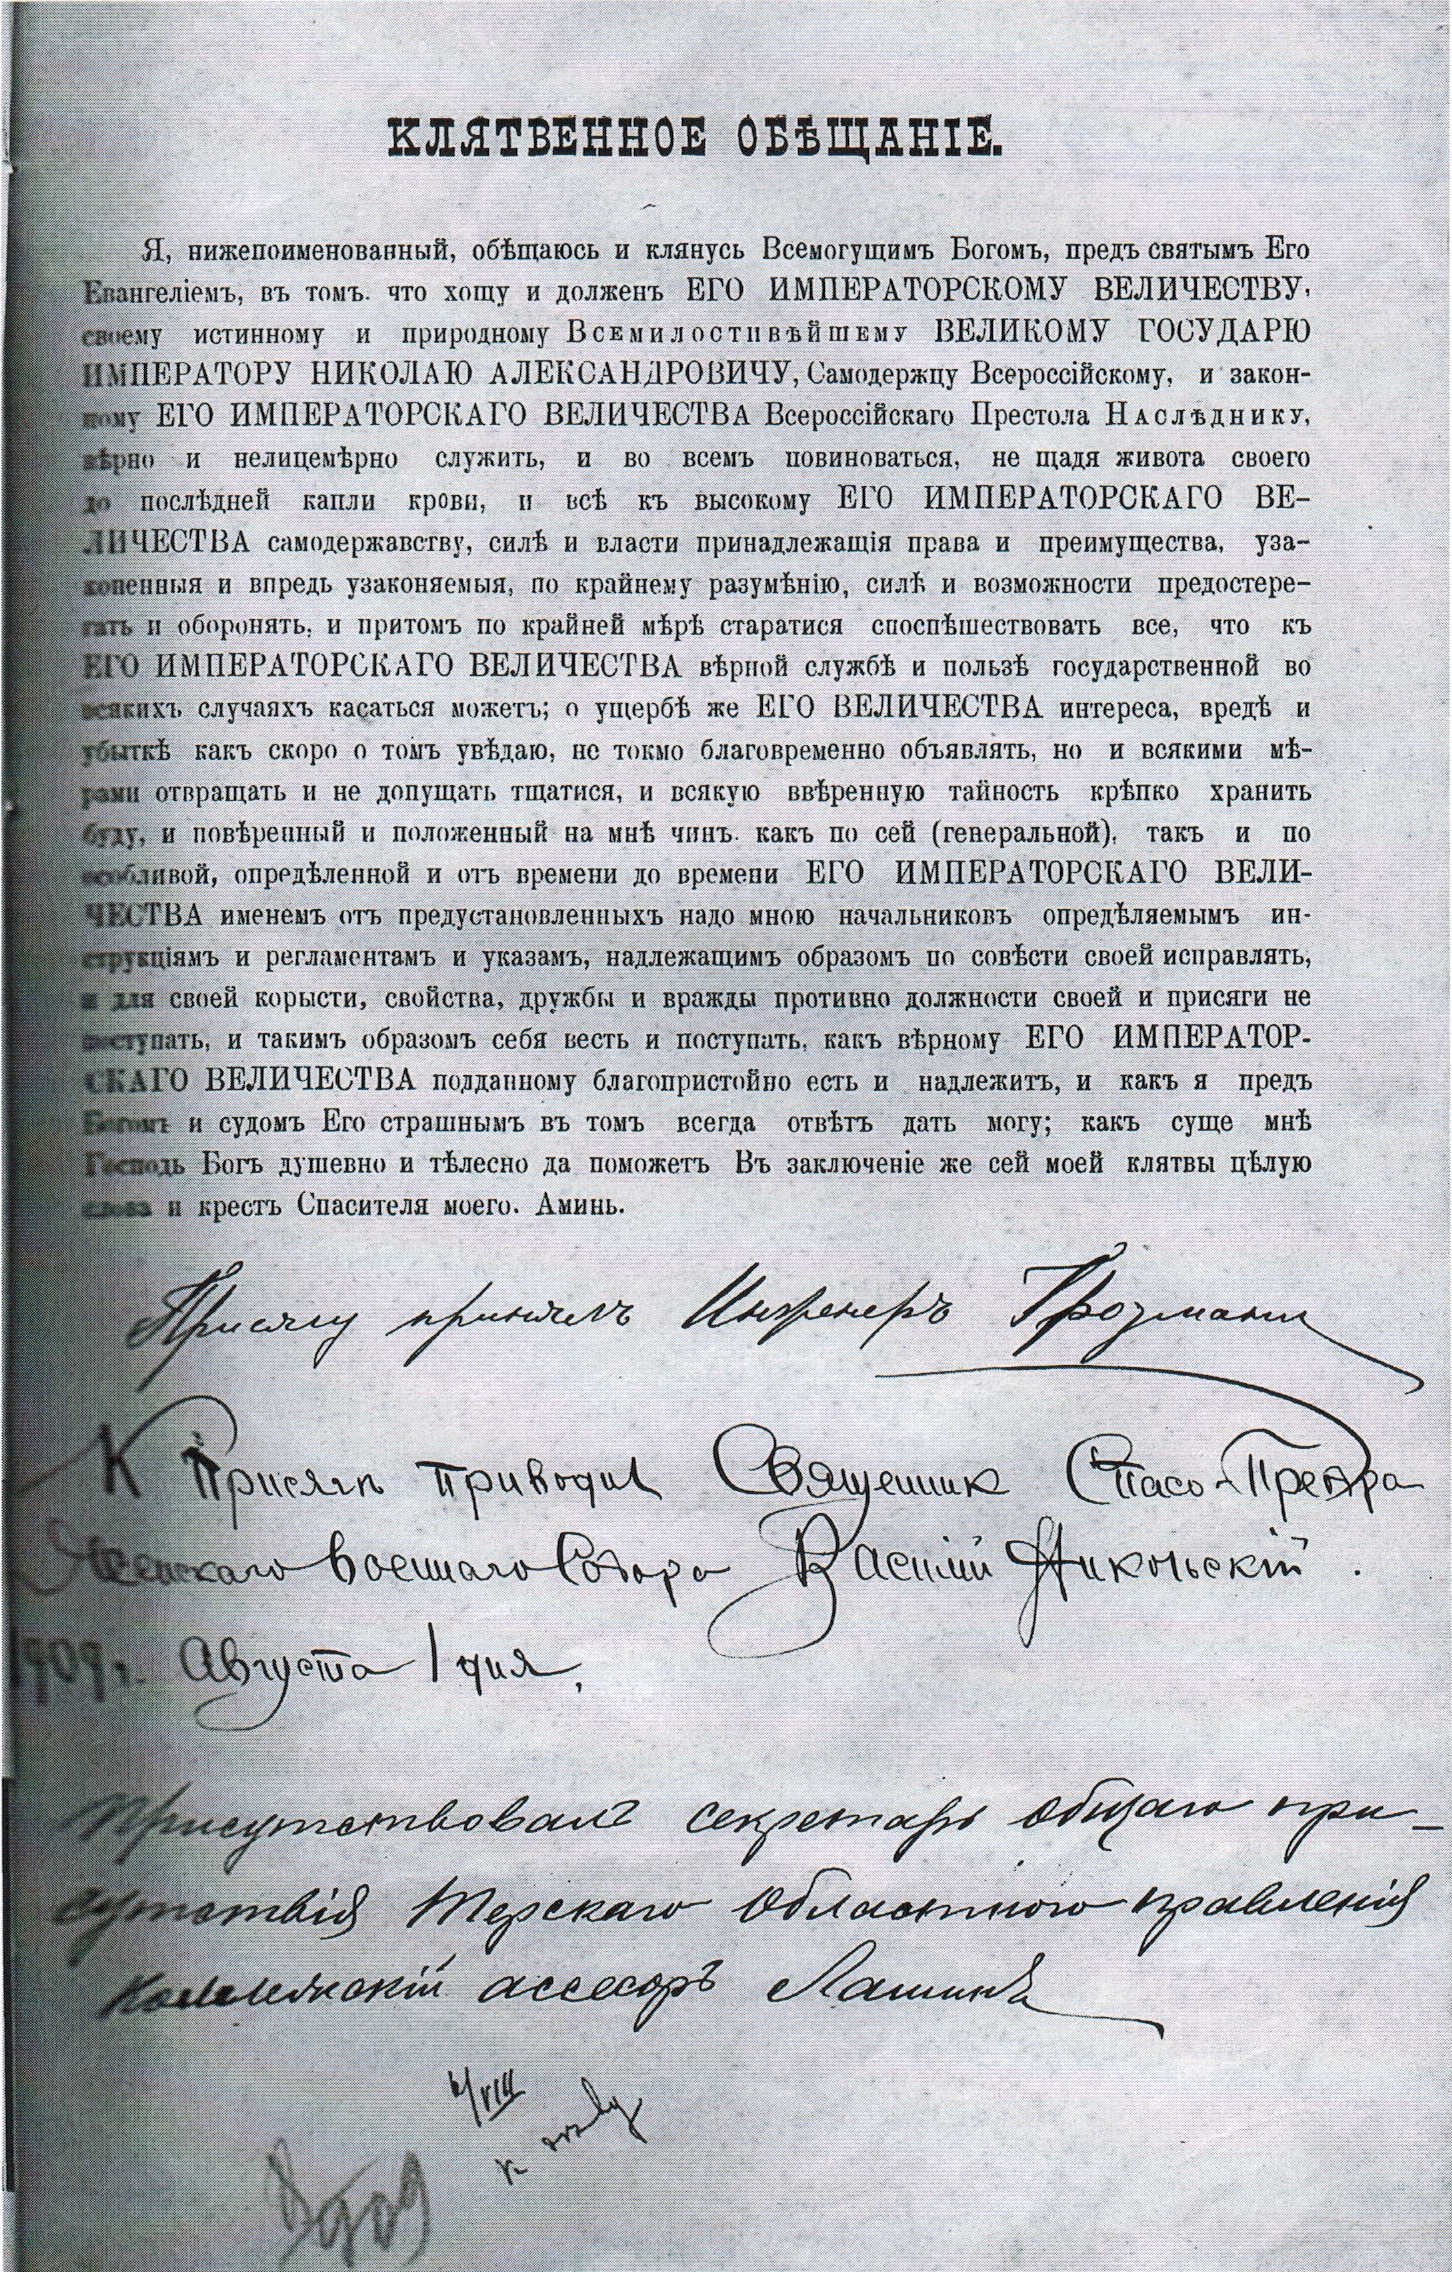 КЛЯТВЕННОЕ ОБѢЩАНІЕ.
Я, нижепоименованный, обѣщаюсь и клянусь Всемогущимъ Богомъ, предъ святымъ Его
Евангеліемъ, въ томъ. что хощу и долженъ ЕГО ИМПЕРАТОРСКОМУ ВЕЛИЧЕСТВУ,
своему истинному и природному Всемилостивѣйшему ВЕЛИКОМУ ГОСУДАРЮ
ИМПЕРАТОРУ НИКОЛАЮ АЛЕКСАНДРОВИЧУ, Самодержцу Всероссійскому, и закон-
ному ЕГО ИМПЕРАТОРСКАГО ВЕЛИЧЕСТВА Всероссійскаго Престола Наслѣднику,
вѣрно и нелицемѣрно служить, и во всемъ повиноваться, не щадя живота своего
до послѣдней капли крови, и всѣ къ высокому ЕГО ИМПЕРАТОРСКАГО ВЕ-
ЛИЧЕСТВА самодержавству, силѣ и власти принадлежащія права и преимущества, уза-
коненныя и впредь узаконяемыя, по крайнему разумѣнію, силѣ и возможности предостере-
гать и оборонять, и притомъ по крайней мѣрѣ старатися споспѣшествовать все, что къ
ЕГО ИМПЕРАТОРСКАГО ВЕЛИЧЕСТВА вѣрной службѣ и пользѣ государственной во
всякихъ случаяхъ касаться можетъ; о ущербѣ же ЕГО ВЕЛИЧЕСТВА интереса, вредѣ и
убыткѣ какъ скоро о томъ увѣдаю, не токмо благовременно объявлять, но и всякими мѣ-
рами отвращать и не допущать тщатися, и всякую ввѣренную тайность крѣпко хранить
буду, и повѣренный и положенный на мнѣ чинъ. какъ по сей (генеральной), такъ и по
особливой, опредѣленной и отъ времени до времени ЕГО ИМПЕРАТОРСКАГО ВЕЛИ-
ЧЕСТВА именемъ отъ предустановленныхъ надо мною начальниковъ опредѣляемымъ ин-
струкціямъ и регламентамъ и указамъ, надлежащимъ образомъ по совѣсти своей исправлять,
и для своей корысти, свойства, дружбы и вражды противно должности своей и присяги не
поступать, и такимъ образомъ себя весть и поступать, какъ вѣрному ЕГО ИМПЕРАТОР-
СКАГО ВЕЛИЧЕСТВА подданному благопристойно есть и надлежитъ, и какъ я предъ
Богомъ и судомъ Его страшнымъ въ томъ всегда отвѣтъ дать могу; какъ суще мнѣ
Господь Богъ душевно и тѣлесно да поможетъ Въ заключеніе же сей моей клятвы цѣлую
слова и крестъ Спасителя моего. Аминь.
Присягу принялъ Инженеръ Грозмани
К Присягѣ приводил Священник Спасо-Преобра
женскаго военнаго Собора Василій Никольскій.
1909 г. Августа 1 дня.
Присутствовалъ секретарь общаго при-
сутствія Терскаго Областного правленія
Коллежскій ассесоръ Лашинъ
/VIII
к